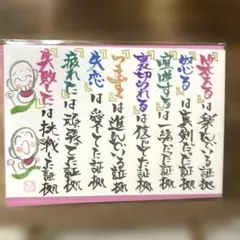 は楽しんでいる証拠
『怒る』は真剣だった証拠
『喧嘩する』は一緒だった証拠
『裏切られる』は信じてた証拠
『つまずく』は進んでいる証拠
『失恋』は愛してた証拠
『疲れた』は頑張ってた証拠
『失敗した』は挑戦した証拠